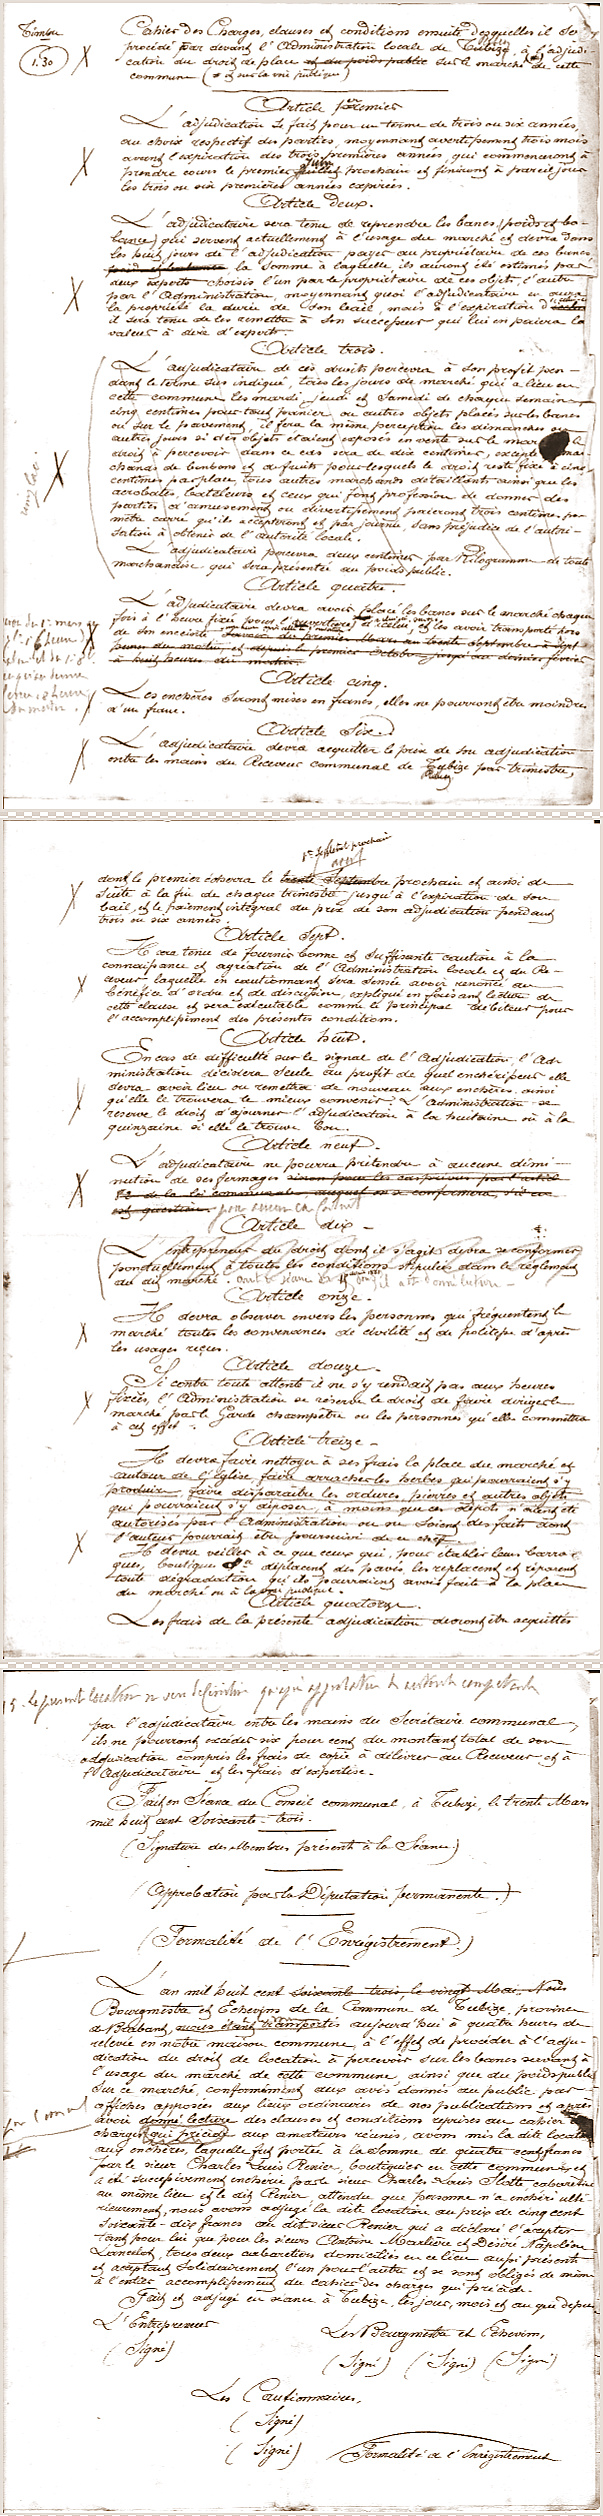 Timbre
1.30
Cahier des Charges, clauses et conditions ensuite desquelles il sera
procédé par devant l'Administration locale de Tubize, à l'adjudi-
cation du droit de place et du poids public sur le marché de cette
commune (et sur la voie publique)
Article premier
L'adjudication se fait pour un terme de trois ou six années,
au choix respectif des parties, moyennant avertissement trois mois
avant l'expiration des trois premières années, qui commenceront à
prendre cours le premier Juillet prochain et finiront à pareil jour
les trois ou six premières années expirées.
Article Deux.
L'adjudicataire sera tenu de reprendre les bancs, (poids et ba-
lance) qui servent actuellement à l'usage du marché et devra dans
les huit jours de l'adjudication payer au propriétaire de ces bancs,
poids et balance la somme à laquelle ils auront été estimés par
deux experts choisis l'un par le propriétaire de ces objets, l'autre
par l'Administration, moyennant quoi l'adjudicataire en aura
la propriété la durée de son bail, mais à l'expiration
il sera tenu de les remettre à son successeur qui lui en paiera la
valeur à dire d'experts.
Article trois.
L'adjudicataire de ces droits percevra à son profit pen-
dant le terme sus indiqué, tous les jours de marché qui a lieu en
cette commune les mardi, jeudi et samedi de chaque semaine,
cinq centimes pour tout panier ou autres objets placés sur les bancs
ou sur le pavement, il fera la même perception les dimanches ou
autres jours si des objets étaient exposés en vente sur le marché le
droit à percevoir dans ce cas sera de dix centimes, excepté mar-
chands de bonbons et de fruits pour lesquels le droit reste fixé à cinq
centimes par place, tous autres marchands détaillants ainsi que les
acrobates, bateleurs et ceux qui font profession de donner des
parties d'amusement ou divertissement paieront trois centimes par
mètre carré qu'ils occuperont et par journée, sans préjudice de l'autori-
sation à obtenir de l'autorité locale.
L'adjudicataire percevra deux centimes par Kilogramme de toute
marchandise qui sera présentée au poids public.
Article quatre.
L'adjudicataire devra avoir placé les bancs sur le marché chaque
fois à l'heure fixée pour l'ouverture et les avoir transporté hors
de son enceinte savoir du premier Mars au trente Septembre à sept
heures du matin, et depuis le premier Octobre jusqu'au dernier février
à huit heures du matin.
Article cinq.
Les enchères seront mises en francs, elles ne pourront être moindre
d'un franc.
Article Six
L'adjudicataire devra acquitter le prix de son adjudication
entre les mains du Receveur communal de Tubize par trimestre,
dont le premier écherra le trente Septembre prochain et ainsi de
suite à la fin de chaque trimestre jusqu'à l'expiration de son
bail, et le paiement intégral du prix de son adjudication pendant
trois ou six années.
Article Sept.
Il sera tenu de fournir bonne et suffisante caution à la
connaissance et agréation de l'Administration locale et du Re-
ceveur laquelle en cautionnant sera sensée avoir renoncé au
bénéfice d'ordre et de discussion, expliqué en faisant lecture de
cette clause et sera exécutable comme le principal débiteur pour
l'accomplissement des présentes conditions.
Article huit.
En cas de difficulté sur le signal de l'Adjudication, l'Ad-
ministration décidera seule au profit de quel enchérisseur elle
devra avoir lieu ou remettra de nouveau aux enchères, ainsi
qu'elle le trouvera le mieux convenir. L'Administration se
réserve le droit d'ajourner l'adjudication à la huitaine ou à la
quinzaine si elle le trouve bon.
Article neuf.
L'adjudicataire ne pourra prétendre à aucune dimi-
nution de ses fermages sinon pour les cas prévus par l'article
de la loi communale, auquel on se conformera, s'il en
est question
Article dix -
L'entrepreneur du droit dont il s'agit devra se conformer
ponctuellement à toutes les conditions stipulées dans le règlement
du dit marché.
Article onze.
Il devra observer envers les personnes qui fréquentent le
marché toutes les convenances de civilité et de politesse d'après
les usages reçus.
Article douze.
Si contre toute attente il ne s'y rendait pas aux heures
fixées, l'Administration se réserve le droit de faire diriger le
marché par le Garde champêtre ou les personnes qu'elle commettra
à cet effet.
Article treize -
Il devra faire nettoyer à ses frais la place du marché et
autour de l'Eglise faire arracher les herbes qui pourraient s'y
produire, faire disparaître les ordures pierres et autres objets
qui pourraient s'y déposer, à moins que ces dépôts n'aient été
autorisés par l'Administration ou ne soient des faits dont
l'auteur pourrait être poursuivi de ce chef.
Il devra veiller à ce que ceux qui, pour établir leurs barra-
ques, boutiques déplacent des pavés, les replacent et réparent
toute dégradation qu'ils pourraient avoir faite à la place
du marché ou à la voie publique.
Article quatorze.
Les frais de la présente adjudication devront être acquittés
15. La présente location ne sera définitive qu'après approbation de l'autorité compétente
par l'adjudicataire entre les mains du Secrétaire communal,
ils ne pourront excéder six pour cent du montant total de son
adjudication compris les frais de copie à délivrer au Receveur et à
l'Adjudicataire et les frais d'expertise.
Fait en Séance du Conseil communal, à Tubize, le trente Mars
mil huit cent soixante-trois.
(Signature des Membres présent à la Séance)
(Approbation par la Députation permanente.)
(Formalité de l'Enregistrement.)
L'an mil huit cent soixante trois, le vingt Mai, Nous
Bourgmestre et Echevins de la Commune de Tubize, province
de Brabant, nous étant transportés aujourd'hui à quatre heures de
relevée en notre maison commune, à l'effet de procéder à l'adju-
dication du droit de location à percevoir sur les bancs servant à
l'usage du marché de cette commune, ainsi que du poids public
sur ce marché, conformément aux avis donnés au public par
affiches apposées aux lieux ordinaires de nos publications et après
avoir donné lecture des clauses et conditions reprises au cahier des
charges qui précède aux amateurs réunis, avons mis la dite location
aux enchères, laquelle fut portée à la somme de quatre cent francs
par le sieur Charles Louis Renier, boutiquier en cette commune et
a été successivement enchérie par le sieur Charles Louis Flotte, cabaretier
au même lieu et le dit Renier attendu que personne n'a enchéri ulté-
rieurement, nous avons adjugé la dite location au prix de cinq cent
soixante-dix francs au dit sieur Renier qui a déclaré l'accepter
tant pour lui que pour les sieurs Antoine Marlière et Désiré Napoléon
Lancelot, tous deux cabaretiers domiciliés en ce lieu aussi présents
et acceptant solidairement l'un pour l'autre et se sont obligés de même
à l'entier accomplissement du cahier des charges qui précède.
Fait et adjugé en séance à Tubize, les jour, mois et an que dessus
L'Entrepreneur
Les Bourgmestre et Echevins,
(Signé)
(Signé) (Signé) (Signé)
Les Cautionnaires,
(Signé)
(Signé)
Formalité de l'Enregistrement